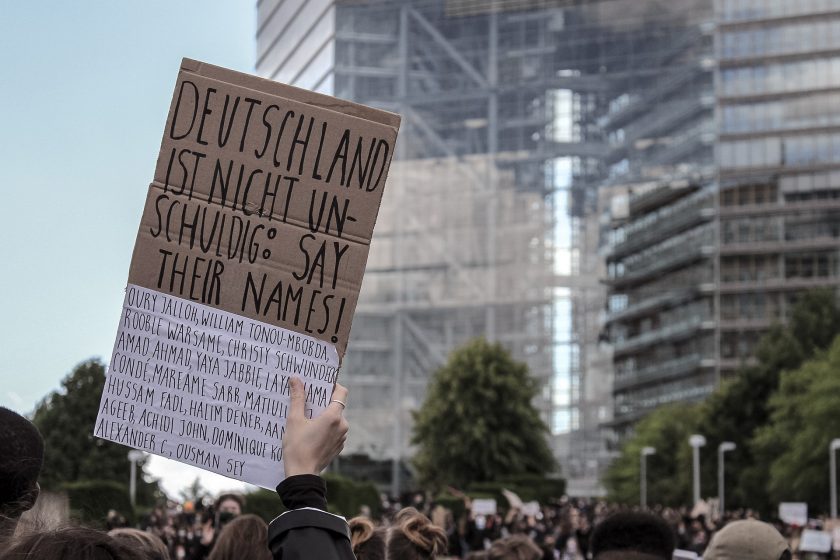 DEUTSCHLAND
IST NICHT UN-
SCHULDIG: SAY
THEIR NAMES!
OURY JALLOH, WILLIAM TONOU-MBOBDA,
ROOBLE WARSAME, CHRISTY SCHWUNDECK
AMAD AHMAD, YAYA JABBIE, LAYA
CONDÉ, MAREAME SARR, MATIUL
HUSSAM FADL, HALIM DENER, AAM
AGEER, ACHIDI JOHN, DOMINIQUE KO
ALEXANDER C., OUSMAN SEY